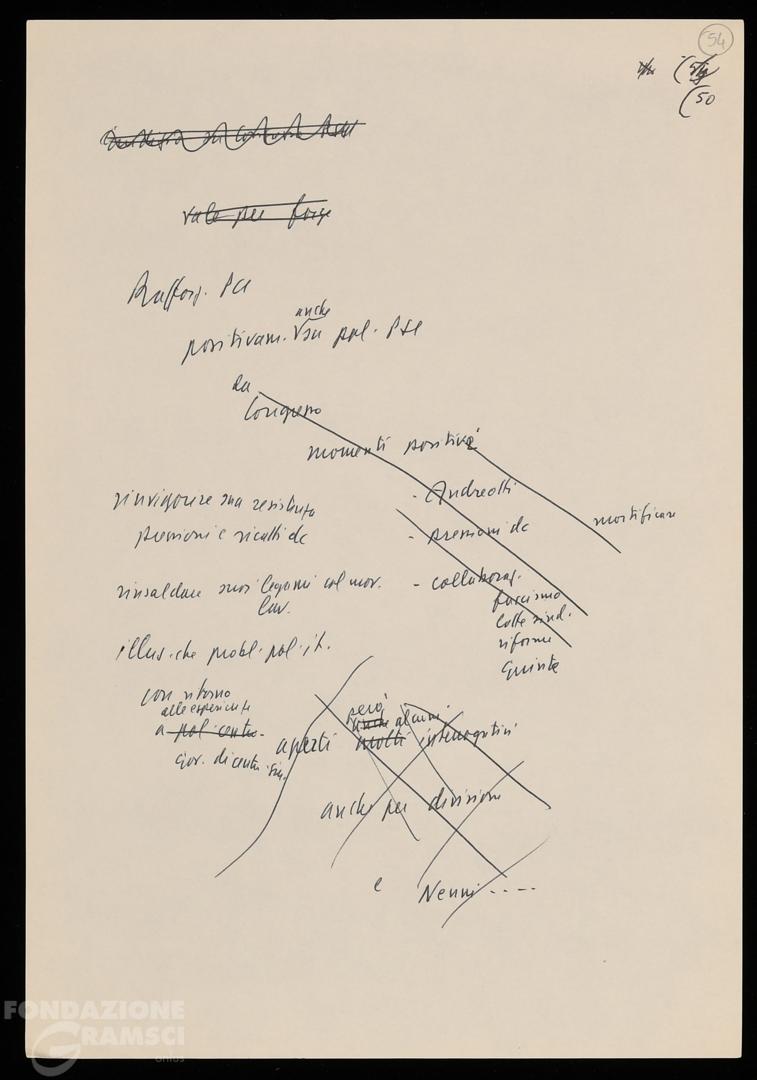 54
(50
vale per forze
Rafforz. PCI
anche
positivam. su pol. PSI
da
Congresso
momenti positivi
rinvigorire sua resistenza
- Andreotti
mortificare
pressioni e ricatti dc
- pressioni dc
rinsaldare suoi legami col mov.
lav.
- collaboraz.
fascismo
lotte sind.
riforme
illus. che probl. pol. it.
con ritorno
alle esperienze
a pol. centro-
gov. di centro-sin.
però
anche alcuni
aperti molti interrogativi
anche per divisioni
e Nenni ----
FONDAZIONE
GRAMSCI
onlus